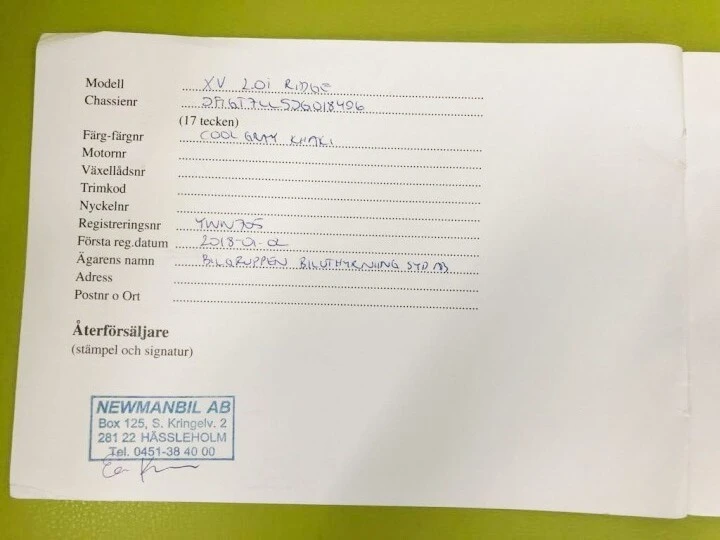 Modell XV 2.0i RIDGE
Chassienr
(17 tecken)
Färg-färgnr COOL GRAY KHAKI
Motornr
Växellådsnr
Trimkod
Nyckelnr
Registreringsnr YWN705
Första reg.datum 2018-01-02
Ägarens namn BILGRUPPEN BILUTHYRNING SYD AB
Adress
Postnr o Ort
Återförsäljare
(stämpel och signatur)
NEWMANBIL AB
Box 125, S. Kringelv. 2
281 22 HÄSSLEHOLM
Tel. 0451-38 40 00